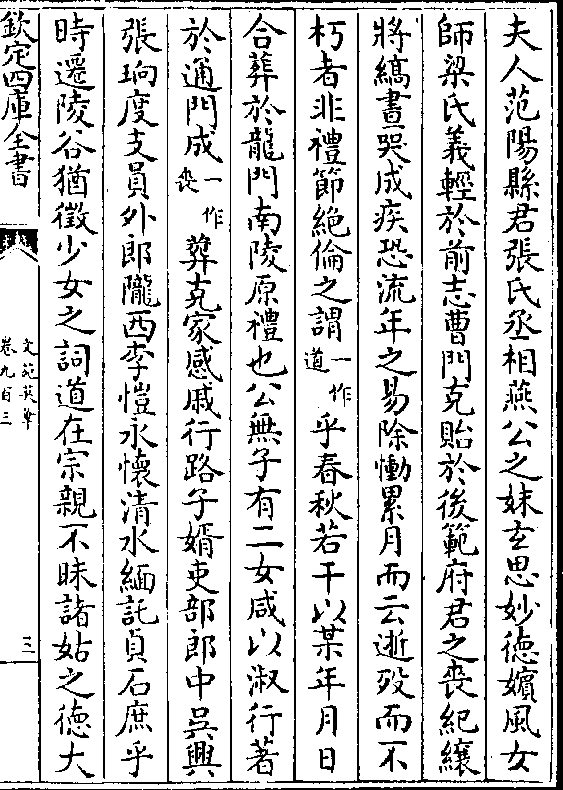 夫人范陽縣君張氏丞相燕公之妹玄思妙德嬪風女
師梁氏義輕於前志曹門克貽於後範府君之喪紀纕
將縞晝哭成疾恐流年之易除慟累月而云逝歿而不
朽者非禮節絶倫之謂一作道乎春秋若干以某年月日
合葬於龍門南陵原禮也公無子有二女咸以淑行著
於通門成一作喪葬克家感戚行路子婿吏部郎中吳興
張珦度支員外郎隴西李愷永懷清水緬託貞石庶乎
時遷陵谷猶徵少女之詞道在宗親不昧諸姑之德大
欽定四庫全書
文苑英華
卷九百三
三